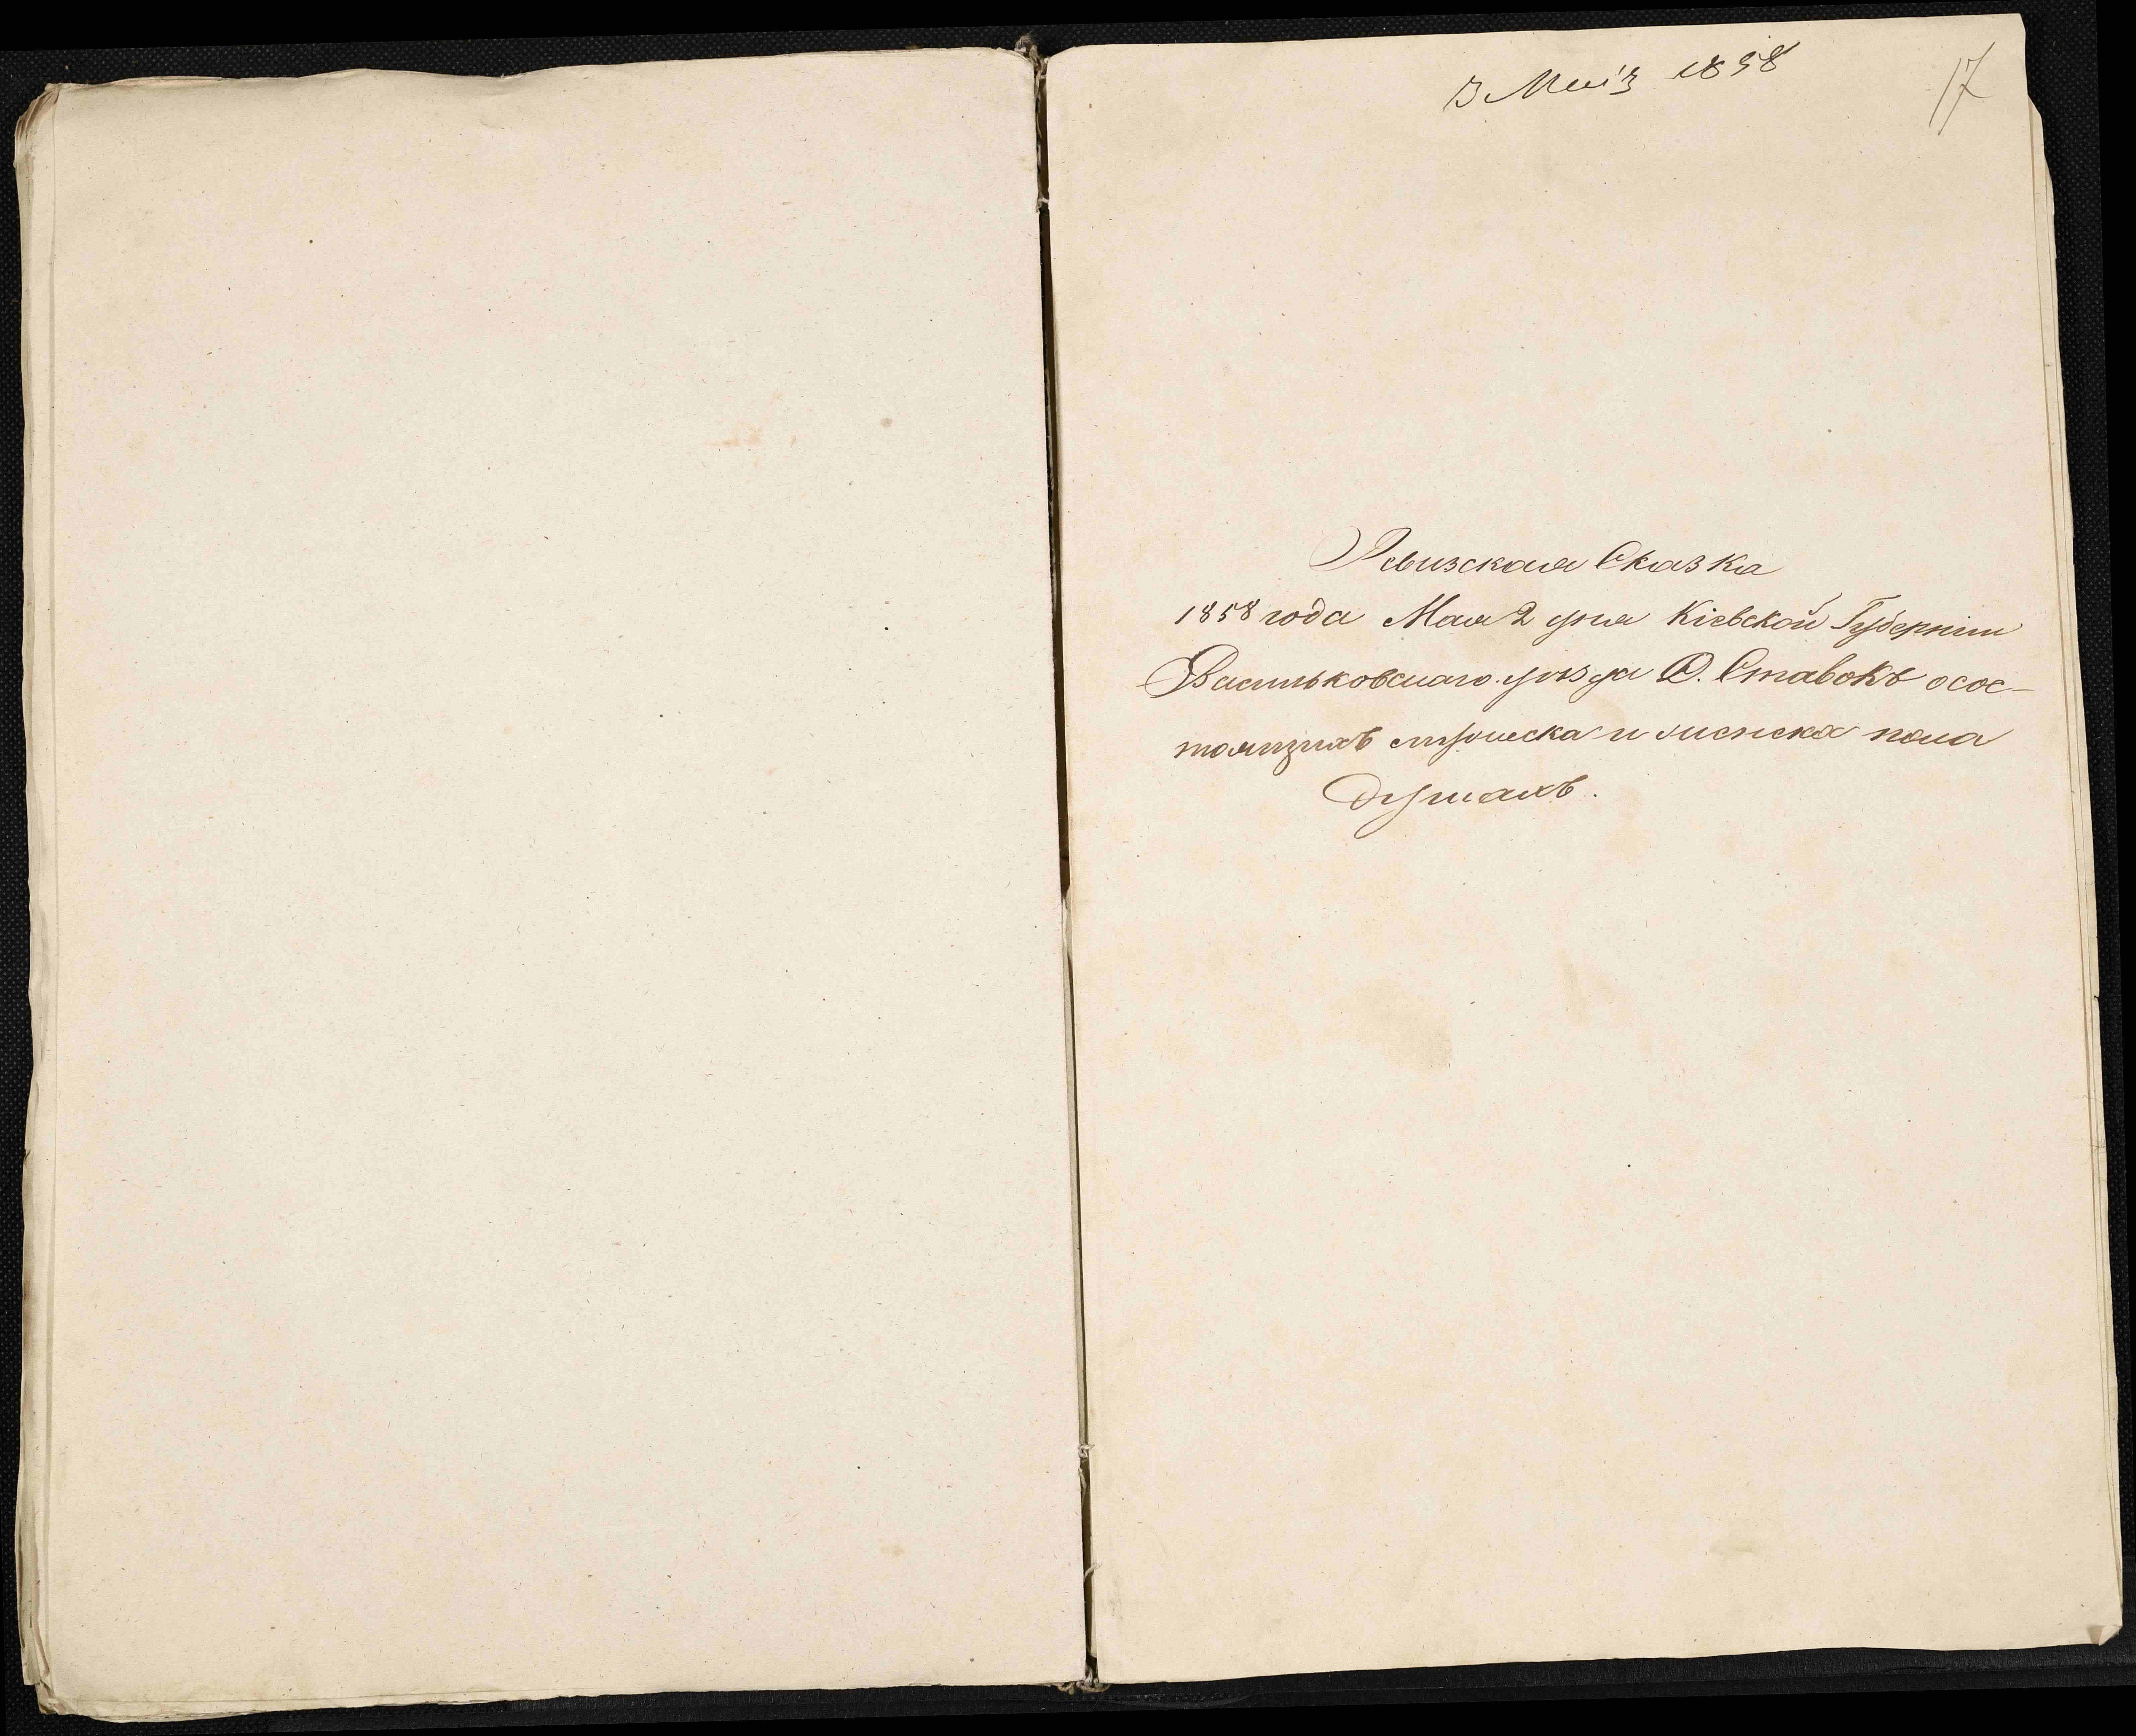 3 Мая 1858
17
Ревизская Сказка
1858 года Мая 2 дня Кіевской Губерніи
Васильковскаго уѣзда Д. Ставокъ осос-
тоящихъ мужеска и женска пола
душахъ.